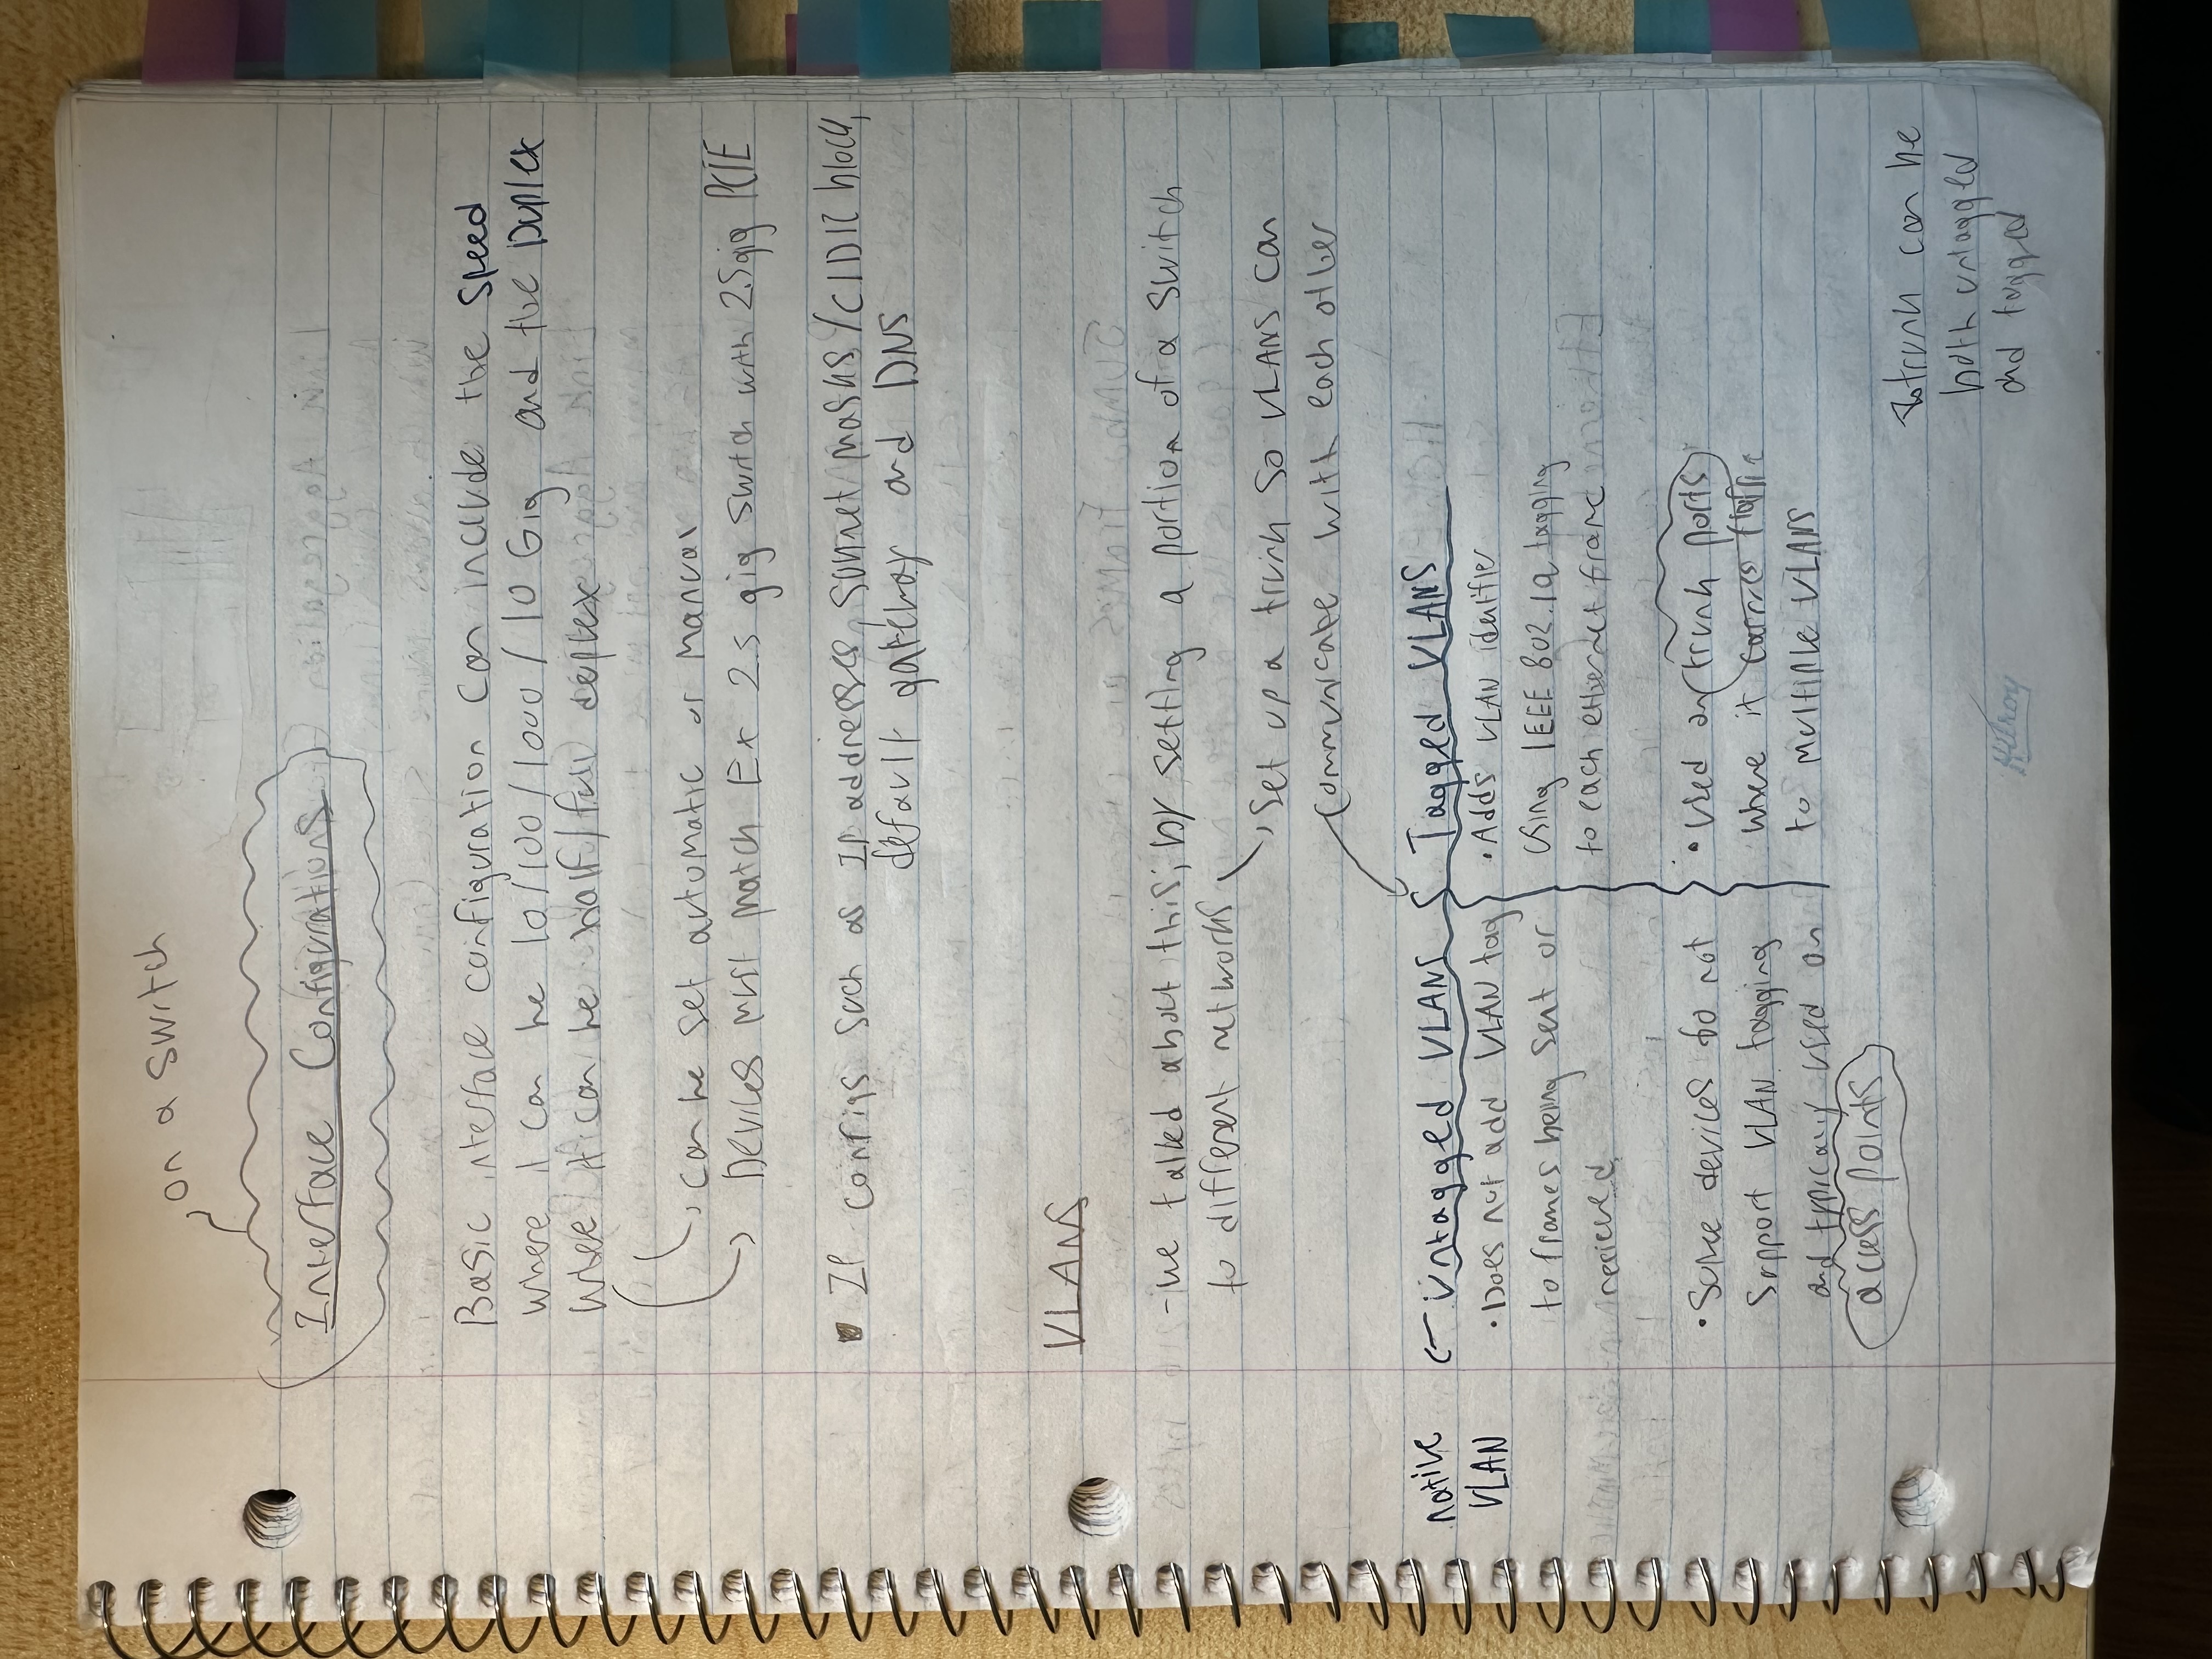 on a switch
Interface Configurations
Basic interface configuration can include the speed
where it can be 10/100/1000/10 Gig and the Duplex
where it can be half/full deplex
can be set automatic or manual
Devices must match Ex 2.5 gig switch with 2.5gig PCIE
IP configs such as IP addresses, subnet masks/CIDR block,
default gateway and DNS
VLANS
-we talked about this; by setting a portion of a switch
to different networks
set up a trunk so VLANS can
communicate with each other
native
VLAN
Untagged VLANS
• Does not add VLAN tag
to frames being sent or
recieved
• Some devices do not
support VLAN tagging
and typically used on
access points
Tagged VLANS
• Adds VLAN identifier
using IEEE 802.1q tagging
to each ethernet frame
• Used on trunk ports
where it carries traffic
to multiple VLANS
trunk can be
both untagged
and tagged
Hilroy